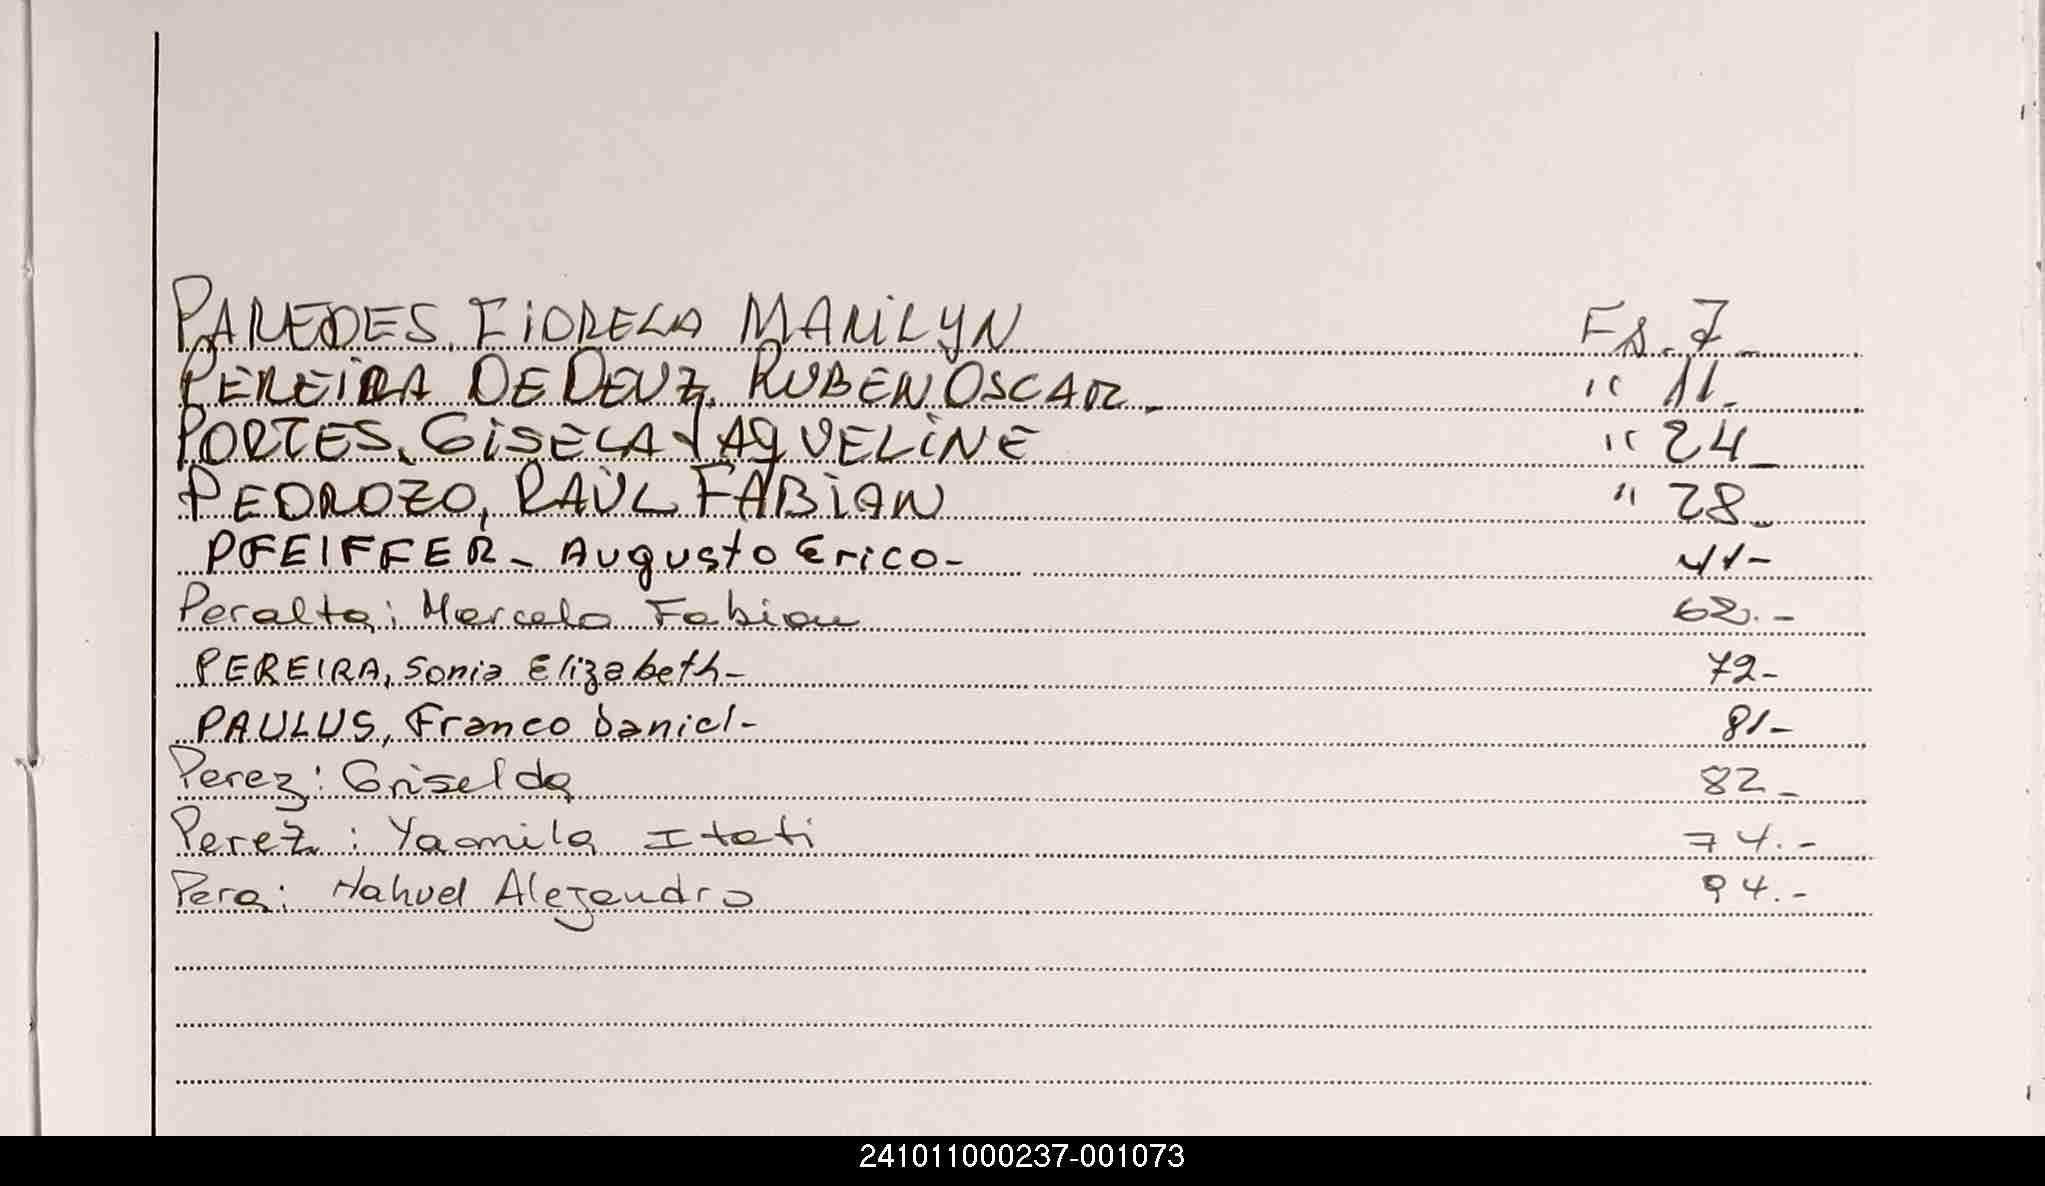 PAREDES, FIORELA MARILYN Fs. 7_
PEREIRA DE DEUZ, RUBEN OSCAR_ " 11_
PORTES, GISELA JAQUELINE " 24_
PEDROZO, RAÚL FABIAN " 28_
PFEIFFER_ Augusto Erico- 41-
Peralta: Marcelo Fabian 62.-
PEREIRA, Sonia Elizabeth- 72-
PAULUS, Franco Daniel- 81-
Perez: Griselda 82_
Perez: Yamila Itati 74.-
Pera: Nahuel Alejandro 94.-
241011000237-001073